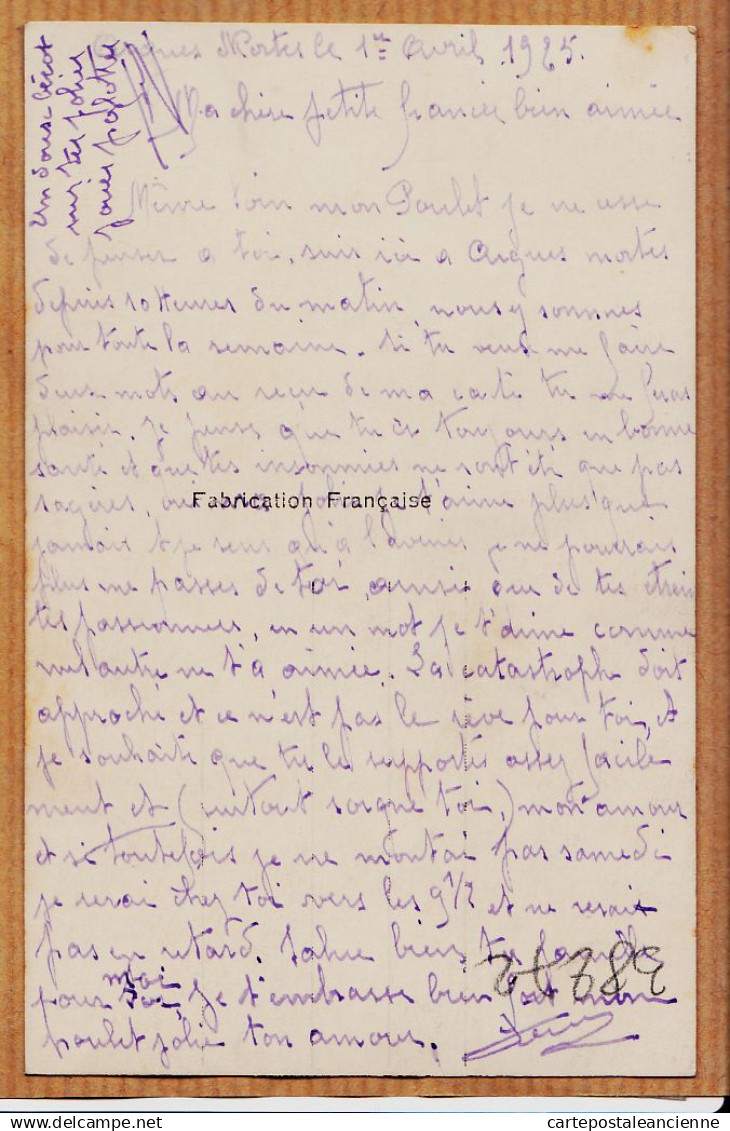 Aigues Mortes le 1er Avril 1925.
Ma chère petite fiancée bien aimée
Un doux bécot
sur tes jolies
joues
Même loin mon Poulet je ne cesse
de penser a toi, suis ici a Aigues mortes
depuis 10 heures du matin, nous y sommes
pour toute la semaine. Si tu veux me faire
deux mots au reçu de ma carte tu me feras
plaisir. Je pense que tu es toujours en bonne
santé et que tes insomnies ne sont été que pas
sagères, oui ma jolie je t'aime plus que
Fabrication Française
jamais et je sens qu'a l'avenir je ne pourrais
plus me passer de toi, ainsi que de tes étrein
tes passionnées, en un mot je t'aime comme
nul autre ne t'a aimée. La catastrophe doit
approché et ce n'est pas le rêve pour toi, et
je souhaite que tu le supportes assez facile
ment et (surtout soigne toi,) mon amour
et si toutefois je ne montai pas samedi
je serai chez toi vers les 9 1/2 et ne serait
pas en retard. Salue bien ta famille
pour moi, Je t'embrasse bien fort mon
poulet jolie ton amour.
38272
cartepostaleancienne